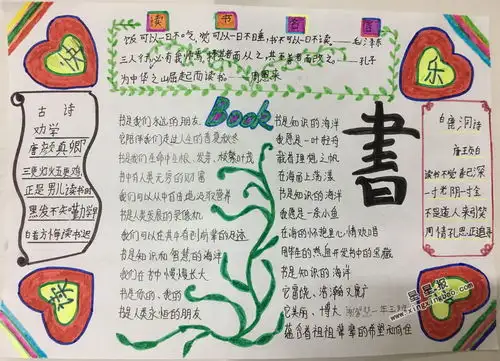 读 书 名 言
饭可以一日不吃，觉可以一日不睡，书不可以一日不读——毛泽东
三人行，必有我师焉，择其善者而从之，其不善者而改之。——孔子
为中华之崛起而读书——周恩来
快
乐
古诗
劝学
唐 颜真卿
三更灯火五更鸡
正是男儿读书时
黑发不知勤学早
白首方悔读书迟
Book
书是我们永远的朋友
它陪伴我们走过人生的春夏秋冬
书是我们的生命中生根、发芽、枝繁叶茂
书中有人类无穷的财富
我们可以从中自由地汲取营养
书是人类发展的录像机
我们可以在其中看到前辈的足迹
书是知识和智慧
我们在书中慢慢长大
书是你的、我的
书是人类永恒的朋友
书是知识的海洋
我愿是一叶轻舟
载着理想之帆
在海面上荡漾
书是知识的海洋
我愿是一条小鱼
在海的怀抱里心情欢唱
用毕生的热血开发书中的宝藏
书是知识的海洋
它富饶、浩瀚又宽广
它美丽、博大
蕴含着祖祖辈辈的希望和向往
書
白鹿洞诗
唐 王贞白
读书不觉春已深
一寸光阴一寸金
不是道人来引笑
周情孔思正追寻
星星报
www.xingxingbao.com